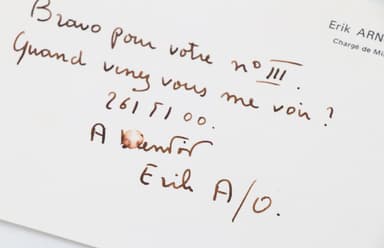 Erik ARN
Chargé de Mi
Bravo pour votre n° III.
Quand venez vous me voir ?
261 51 00.
A bientôt
Erik A/O.